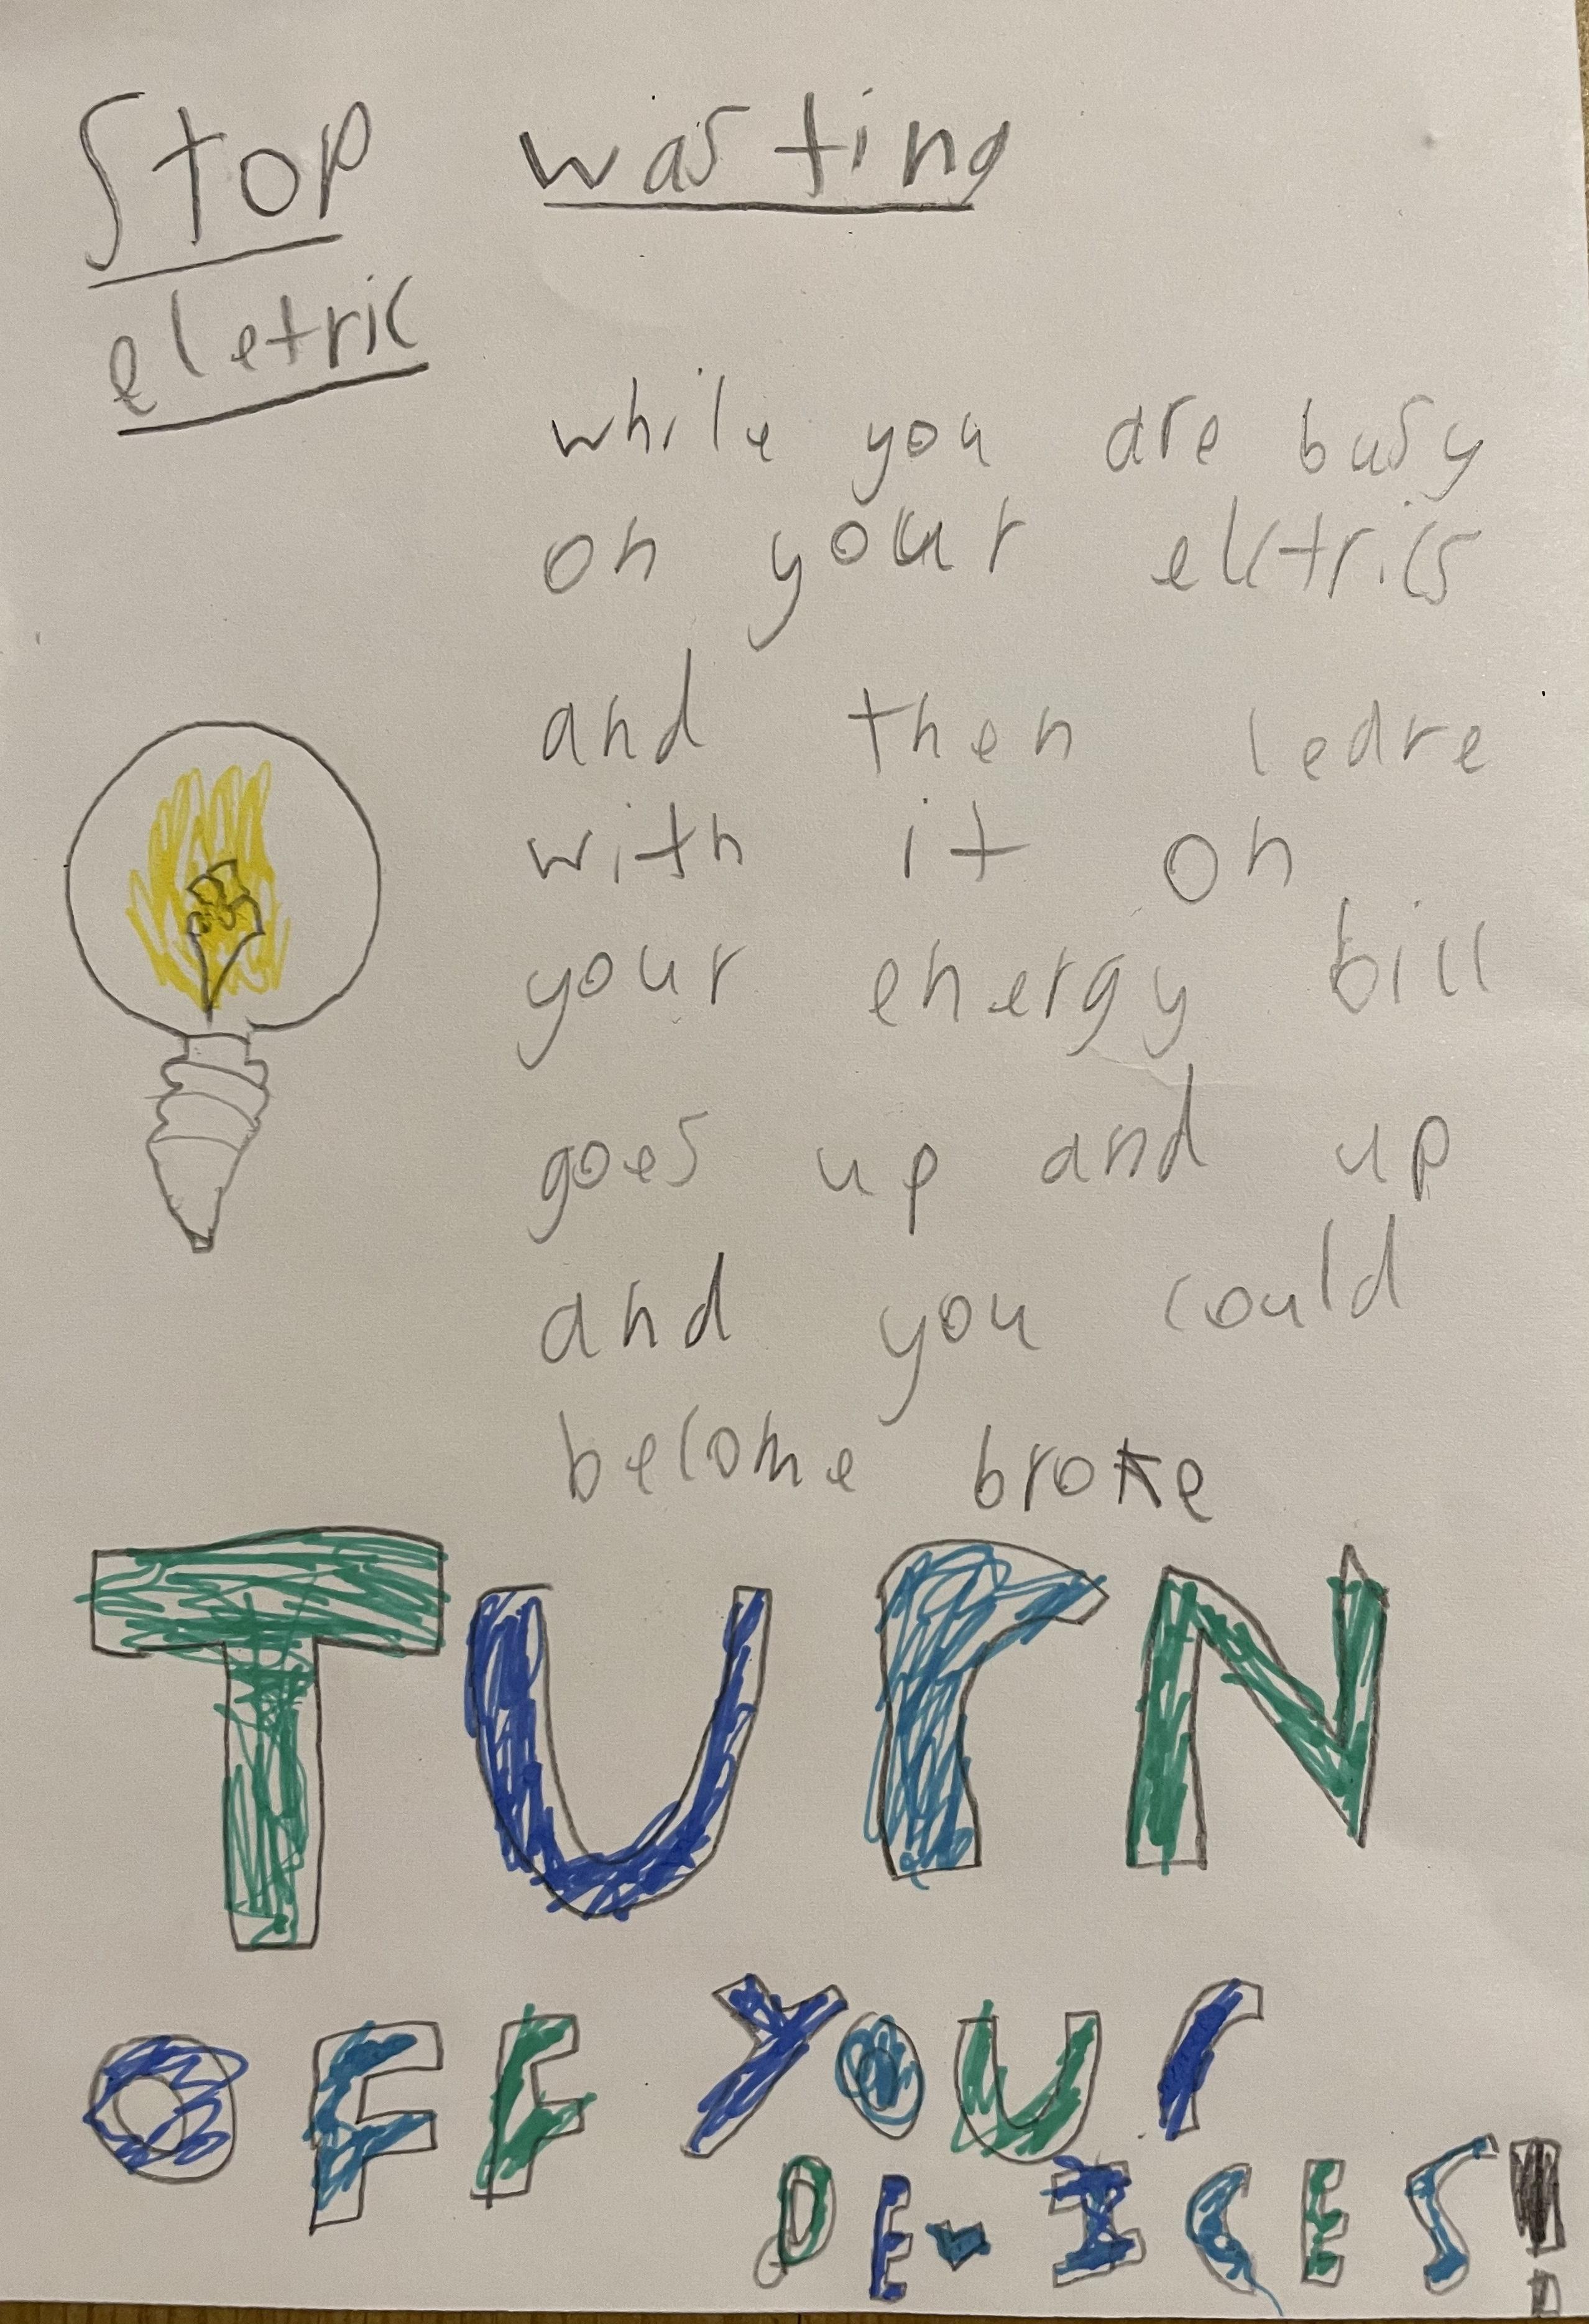 Stop wasting
eletric
while you are busy
on your elctrics
and then leave
with it on
your energy bill
goes up and up
and you could
become broke
TUrN
OFF YOUr
DEvICES!